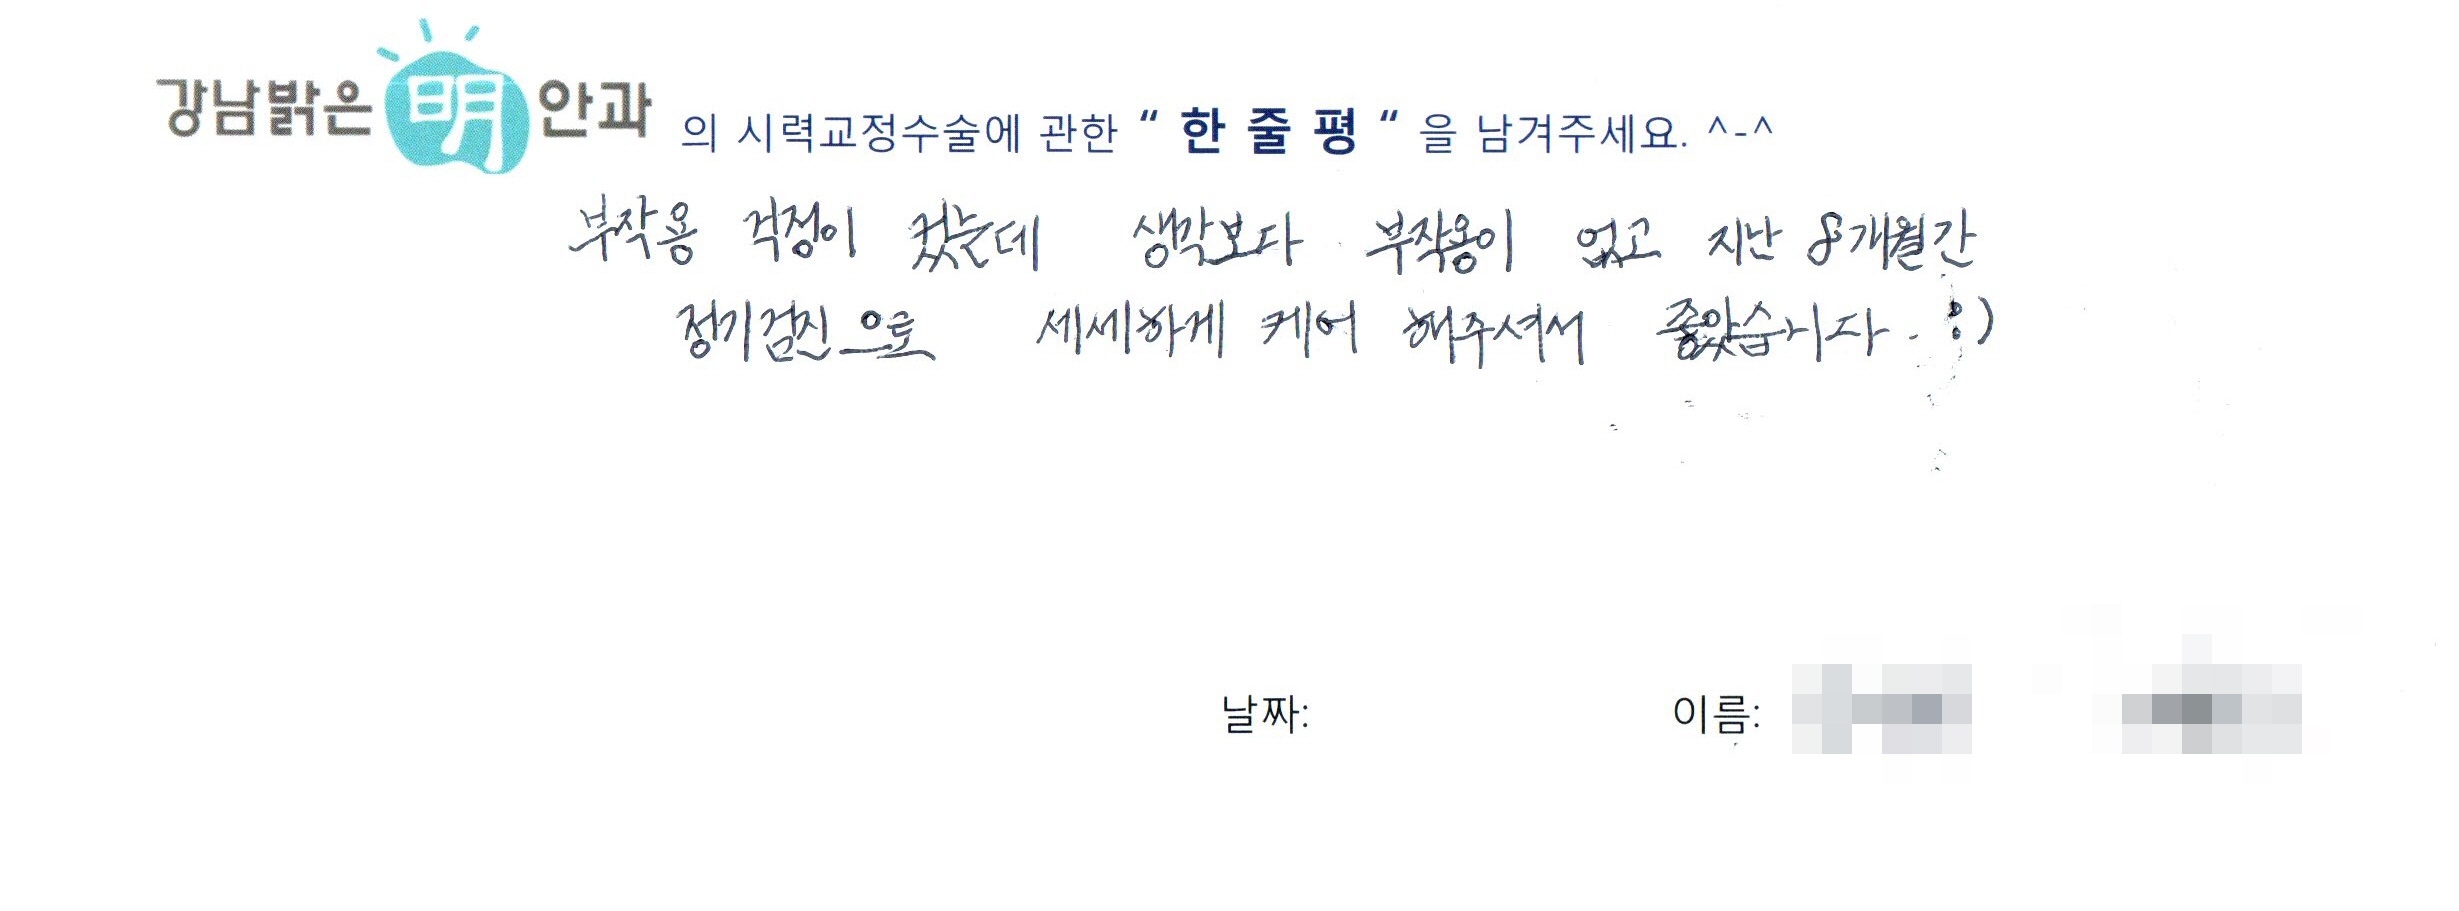 강남밝은明안과 의 시력교정수술에 관한 “ 한 줄 평 “ 을 남겨주세요. ^-^
부작용 걱정이 컸는데 생각보다 부작용이 없고 지난 8개월간
정기검진으로 세세하게 케어 해주셔서 좋았습니다. :)
날짜: 이름: